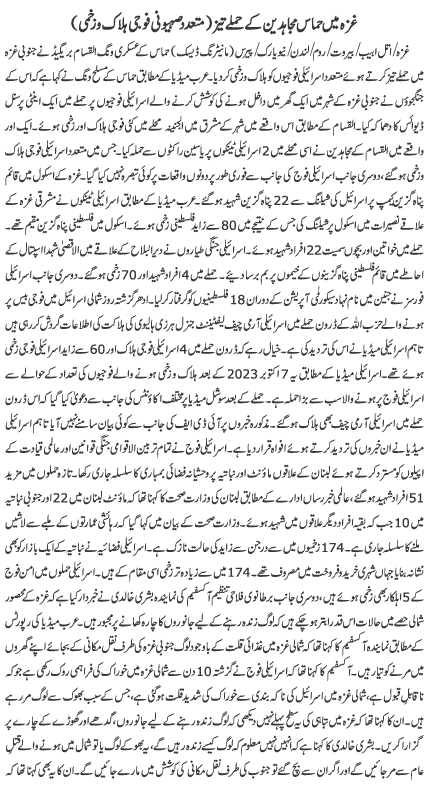 غزہ میں حماس مجاہدین کے حملے تیز (متعدد صہیونی فوجی ہلاک وزخمی)
غزہ/اتل ابیب/بیروت/روم/لندن/نیویارک/پیرس (مانیٹرنگ ڈیسک) حماس کے عسکری ونگ القسام بریگیڈ نے جنوبی غزہ
میں حملے تیز کرتے ہوئے متعدد اسرائیلی فوجیوں کو ہلاک وزخمی کردیا۔ عرب میڈیا کے مطابق حماس کے مسلح ونگ نے کہا ہے کہ اس کے
جنگجوؤں نے جنوبی غزہ کے شہر میں ایک گھر میں داخل ہونے کی کوشش کرنے والی اسرائیلی فوج کو نشانہ بنایا
ڈیوائس کا دھماکا کیا۔ القسام کے مطابق اس واقعے میں شہر کے مشرق میں الجنینہ محلے میں کئی فوجی ہلاک اور زخمی ہوئے۔ ایک اور
واقعے میں القسام کے مجاہدین نے اسی محلے میں 2 اسرائیلی ٹینکوں پر یاسین راکٹوں سے حملہ کیا۔ جس میں متعدد اسرائیلی فوجی ہلاک
وزخمی ہوئے، دوسری جانب اسرائیلی فوج کی جانب سے فوری طور پر دونوں واقعات پر کوئی تبصرہ نہیں کیا گیا۔ غزہ کے سکول میں قائم
پناہ گزین کیمپ پر اسرائیلی شیلنگ سے 22 پناہ گزین شہید ہوگئے۔ عرب میڈیا کے مطابق اسرائیلی ٹینکوں نے مشرقی غزہ کے
علاقے نصیرات میں اسکول پر شیلنگ کی جس کے نتیجے میں 80 سے زاید فلسطینی زخمی ہوگئے۔ اسکول میں فلسطینی پناہ گزین مقیم تھے۔
حملے میں خواتین اور بچوں سمیت 22 افراد شہید ہوئے۔ اسرائیلی جنگی طیاروں نے دیرالبلاح کے علاقے میں الاقصیٰ شہدا اسپتال کے
احاطے میں قائم فلسطینی پناہ گزینوں کے خیموں پر بم برسا دیے۔ حملے میں 4 افراد شہید اور 70 زخمی ہوگئے۔ دوسری جانب اسرائیلی
فورسز نے جنین میں نام نہاد سیکورٹی آپریشن کے دوران 18 فلسطینیوں کو گرفتار کرلیا۔ ادھر گزشتہ روز شمالی اسرائیل میں فوجی بیس پر
ہونے والے حزب اللہ کے ڈرون حملے میں اسرائیلی آرمی چیف لیفٹیننٹ جنرل ہرزی ہالیوی کی ہلاکت کی اطلاعات گردش کر رہی ہیں
تاہم اسرائیلی میڈیا نے اس کی تردید کی ہے۔ خیال رہے کہ ڈرون حملے میں 4 اسرائیلی فوجی ہلاک اور 60 سے زاید اسرائیلی فوجی زخمی
ہوئے تھے۔ اسرائیلی میڈیا کے مطابق یہ 7 اکتوبر 2023 کے بعد ہلاک وزخمی ہونے والے فوجیوں کی تعداد کے حوالے سے
اسرائیلی فوج پر ہونے والا سب سے بڑا حملہ ہے۔ حملے کے بعد سوشل میڈیا پر مختلف اکاؤنٹس کی جانب سے دعویٰ کیا گیا کہ اس ڈرون
حملے میں اسرائیلی آرمی چیف بھی ہلاک ہوگئے۔ مذکورہ خبروں پر آئی ڈی ایف کی جانب سے کوئی بیان سامنے نہیں آیا تاہم اسرائیلی
میڈیا نے ان خبروں کی تردید کرتے ہوئے افواہ قرار دیا ہے۔ اسرائیلی فوج نے تمام ترین الاقوامی جنگی قوانین اور عالمی قیادت کے
اپیلوں کو مسترد کرتے ہوئے لبنان کے علاقوں ماؤنٹ اور نباتیہ پر وحشیانہ فضائی بمباری کا سلسلہ جاری رکھا۔ تازہ حملوں میں مزید
51 افراد شہید ہوگئے، عالمی خبر رساں ادارے کے مطابق لبنان کی وزارت صحت کا کہنا تھا کہ ماؤنٹ لبنان میں 22 اور جنوبی نباتیہ
میں 10 جب کہ بقیہ افراد دیگر علاقوں میں شہید ہوئے۔ وزارت صحت کے بیان میں کہا گیا کہ رہائشی عمارتوں کے ملبے سے لاشیں
ملنے کا سلسلہ جاری ہے۔ 174 زخمیوں میں سے درجن سے زاید کی حالت نازک ہے۔ اسرائیلی فضائیہ نے نباتیہ کے ایک بازار کو بھی
نشانہ بنایا جہاں شہری خرید و فروخت میں مصروف تھے۔ 174 میں سے زیادہ تر زخمی اسی مقام کے ہیں۔ اسرائیلی حملوں میں امن فوج
کے 5 اہلکار بھی زخمی ہوئے ہیں، دوسری جانب برطانوی فلاحی تنظیم آکسفیم کی نمائندہ بشریٰ خالدی نے خبردار کیا ہے کہ غزہ کے محصور
شمالی حصے میں حالات اس قدر ابتر ہوچکے ہیں کہ لوگ زندہ رہنے کے لیے جانوروں کا چارہ کھانے پر مجبور ہیں۔ عرب میڈیا کی رپورٹس
کے مطابق نمائندہ آکسفیم کا کہنا تھا کہ شمالی غزہ میں غذائی قلت کے باوجود لوگ جنوبی غزہ کی طرف نقل مکانی کے بجائے اپنے گھروں
میں مرنے کو تیار ہیں۔ آکسفیم کا کہنا تھا کہ اسرائیلی فوج نے گزشتہ 10 دن سے شمالی غزہ میں خوراک کی فراہمی روک رکھی ہے جو
ناقابل قبول ہے، شمالی غزہ میں اسرائیل کی ناکہ بندی سے خوراک کی شدید قلت ہوگئی ہے، جس کے سبب بھوک سے لوگ مر رہے
ہیں۔ ان کا کہنا تھا کہ غزہ میں تباہی کی یہ سطح پہلے نہیں دیکھی کہ لوگ زندہ رہنے کے لیے جانوروں، گدھے اور گھوڑے کے چارے پر
گزارا کریں۔ بشریٰ خالدی کا کہنا ہے کہ انہیں نہیں معلوم کہ لوگ کیسے زندہ رہیں گے، یہ بھوکے یا تو شمال میں ہونے والی قتل
عام سے مر جائیں گے اور اگر ان سے بچ گئے تو جنوب کی طرف نقل مکانی کی کوشش میں مارے جائیں گے۔ ان کا یہ بھی کہنا تھا کہ